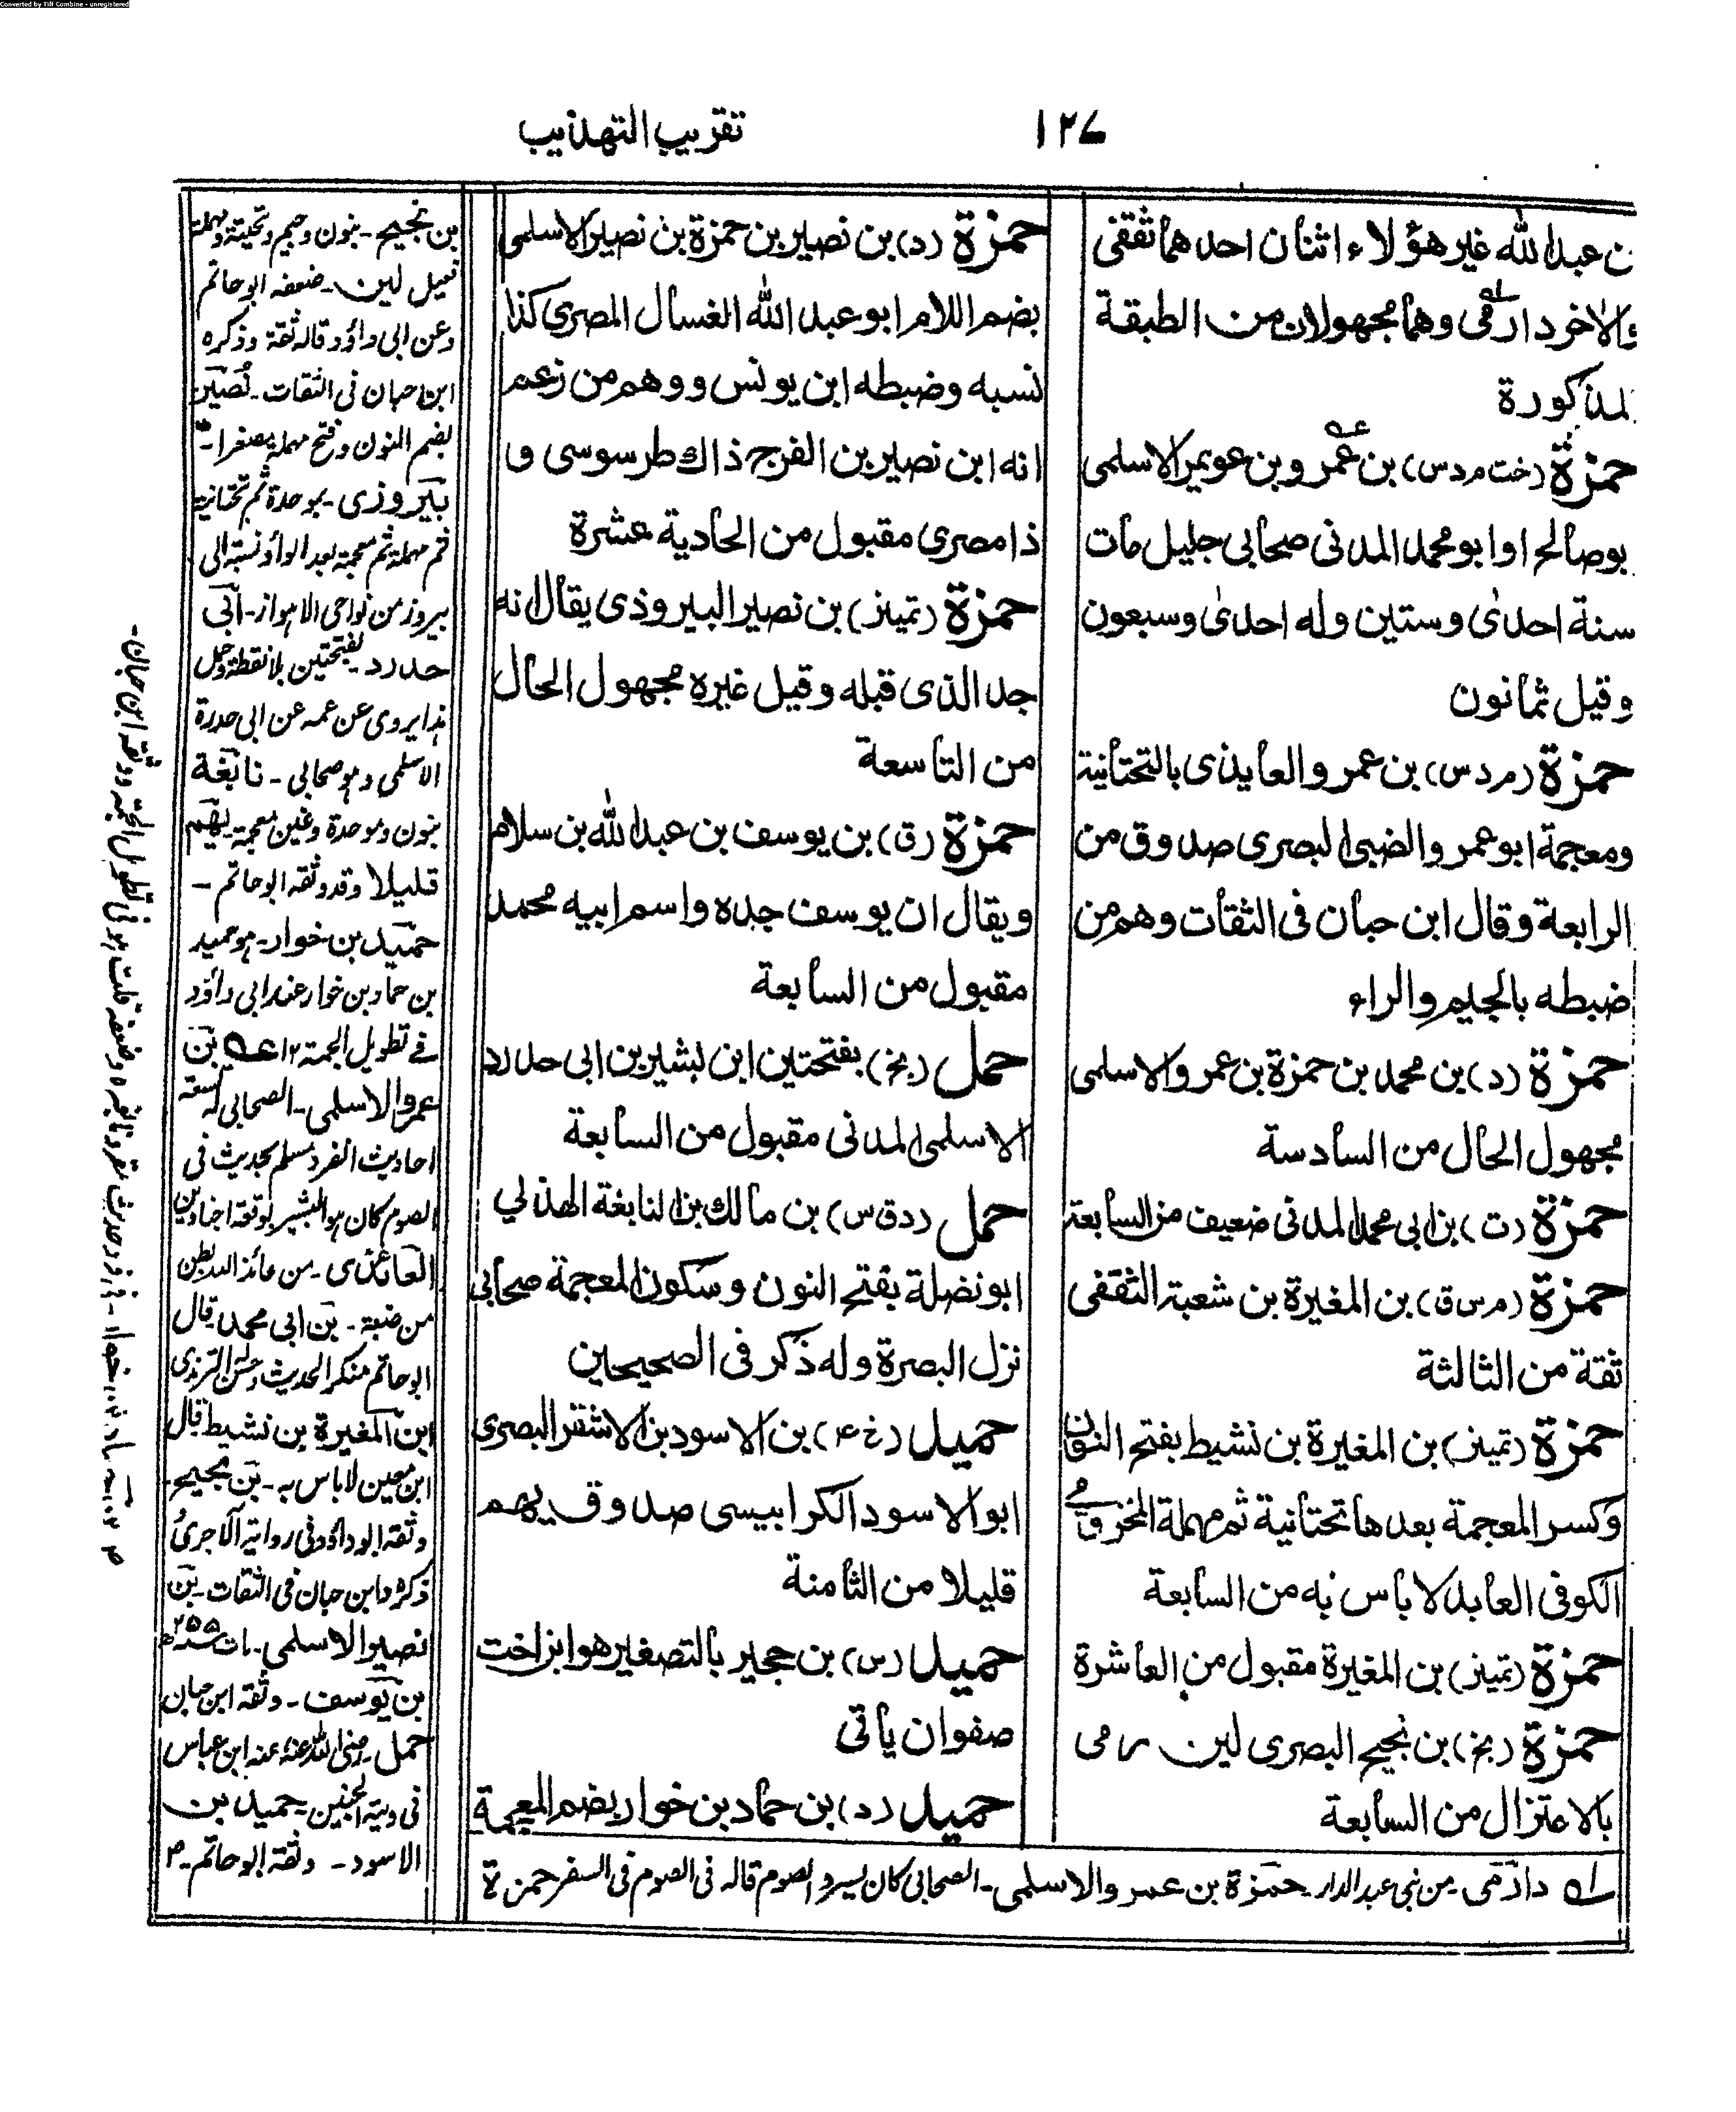 Converted by Tiff Combine - unregistered
١٢٧
تقريب التهذيب
ن عبد الله غير هؤلاء اثنان احدهما ثقفى
والاخر دارمى وهما مجهولان من الطبقة
لمذكورة
حمزة (خت م د س) بن عمرو بن عويمر الاسلمى
بوصالح او ابو محمد المدنى صحابى جليل مات
سنة احدى وستين وله احدى وسبعون
وقيل ثمانون
حمزة (م د س) بن عمرو العايذى بالتحتانية
ومعجمة ابو عمرو الضبى البصرى صدوق من
الرابعة وقال ابن حبان فى الثقات وهم من
ضبطه بالجيم والراء
حمزة (د) بن محمد بن حمزة بن عمرو الاسلمى
مجهول الحال من السادسة
حمزة (ت) بن ابى محمد المدنى ضعيف من السابعة
حمزة (م س ق) بن المغيرة بن شعبة الثقفى
ثقة من الثالثة
حمزة (تميز) بن المغيرة بن نشيط بفتح النون
وكسر المعجمة بعدها تحتانية ثم مهملة المخزومى
الكوفى العابد لا باس به من السابعة
حمزة (تميز) بن المغيرة مقبول من العاشرة
حمزة (بخ) بن نجيح البصرى لين رمى
بالاعتزال من السابعة
حمزة (د) بن نصير بن حمزة بن نصير الاسلمى
بضم اللام ابو عبد الله الغسال المصرى كذا
نسبه وضبطه ابن يونس ووهم من زعم
انه ابن نصير بن الفرج ذاك طرسوسى و
ذا مصرى مقبول من الحادية عشرة
حمزة (تميز) بن نصير البيروذى يقال انه
جد الذى قبله وقيل غيره مجهول الحال
من التاسعة
حمزة (ق) بن يوسف بن عبد الله بن سلام
ويقال ان يوسف جده واسم ابيه محمد
مقبول من السابعة
حمل (بخ) بفتحتين ابن بشير بن ابى حدرد
الاسلمى المدنى مقبول من السابعة
حمل (د ق س) بن مالك بن النابغة الهذلي
ابو نضلة بفتح النون وسكون المعجمة صحابى
نزل البصرة وله ذكر فى الصحيحين
حميل (خ ٤) بن الاسود بن الاشقر البصرى
ابو الاسود الكرابيسى صدوق يهم
قليلا من الثامنة
حميل (س) بن حجير بالتصغير هو ابن اخت
صفوان ياتى
حميل (د) بن حماد بن خوار بضم المعجمة
بن نجيح - بنون وجيم وتحتية ومهملة
قيل لين - ضعفه ابو حاتم
وعن ابى داؤد قاله ثقة وذكره
ابن حبان فى الثقات - نصير
بضم النون وفتح مهملة مصغرا -
بيروزى - بموحدة ثم تحتانية
ثم مهملة ثم معجمة بعد الواو نسبة الى
بيروز من نواحى الاهواز - ابى
حدرد - بفتحتين بلا نقطة وحمل
هذا يروى عن عمه عن ابى حدرد
الاسلمى وهو صحابى - نابغة
بنون وموحدة وغين معجمة - يهم
قليلا وقد وثقه ابو حاتم -
حميد بن خوار - هو حميد
بن حماد بن خوار عند ابى داؤد
فى تطويل الجمة ١٢ عه بن
عمرو الاسلمى - الصحابى له تسعة
احاديث انفرد مسلم بحديث فى
الصوم كان هو البشير بوقعة اجنادين
العائذى - من عائذ الله بطن
من ضبة - بن ابى محمد قال
ابو حاتم منكر الحديث وحسن الترمذى
ابن المغيرة بن نشيط قال
ابن معين لا باس به - بن نجيح -
وثقه ابو داؤد فى رواية الآجرى
ذكره ابن حبان فى الثقات - بن
نصير الاسلمى - مات سنة ٢٥٥ ھ
بن يوسف - وثقه ابن حبان
حمل - رضى الله عنه عنه ابن عباس
فى دية الجنين - حميد بن
الاسود - وثقه ابو حاتم - ١٢
له دارمى - من بنى عبد الدار - حمزة بن عمرو الاسلمى - الصحابى كان يسرد الصوم قاله فى الصوم فى السفر حمزة